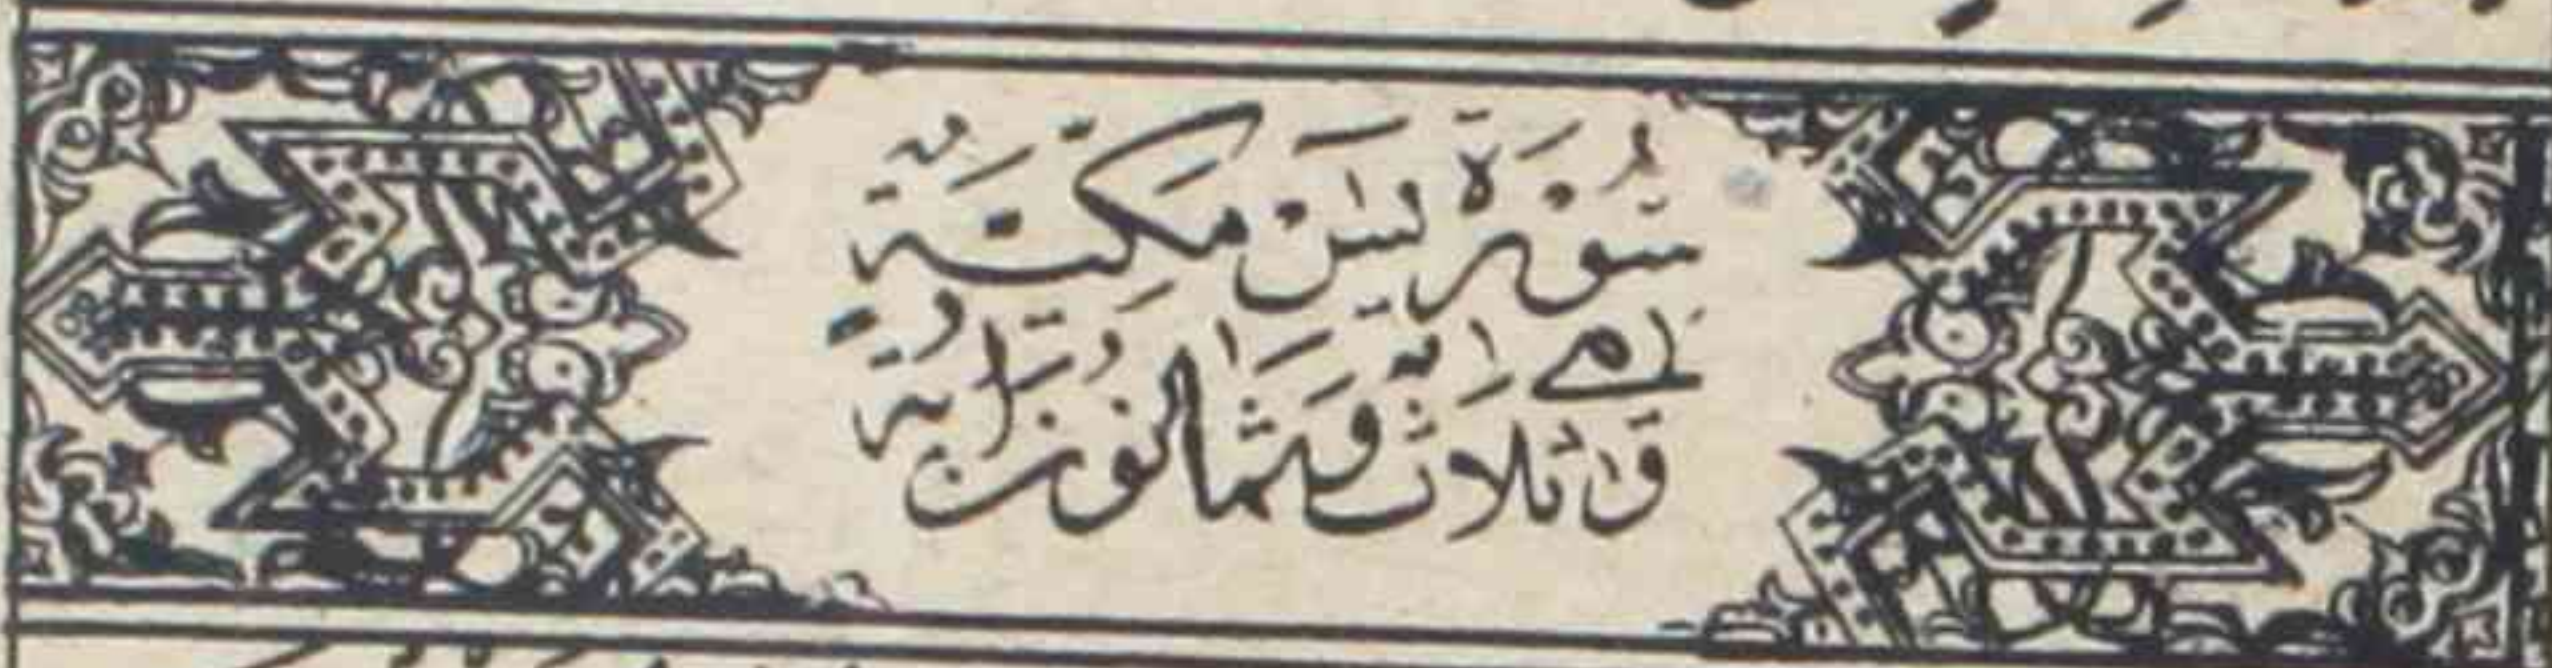 سُورَةُ يٰسٓ مَكِّيَّةٌ
وَهِيَ ثَلَاثٌ وَثَمَانُونَ اٰيَةً